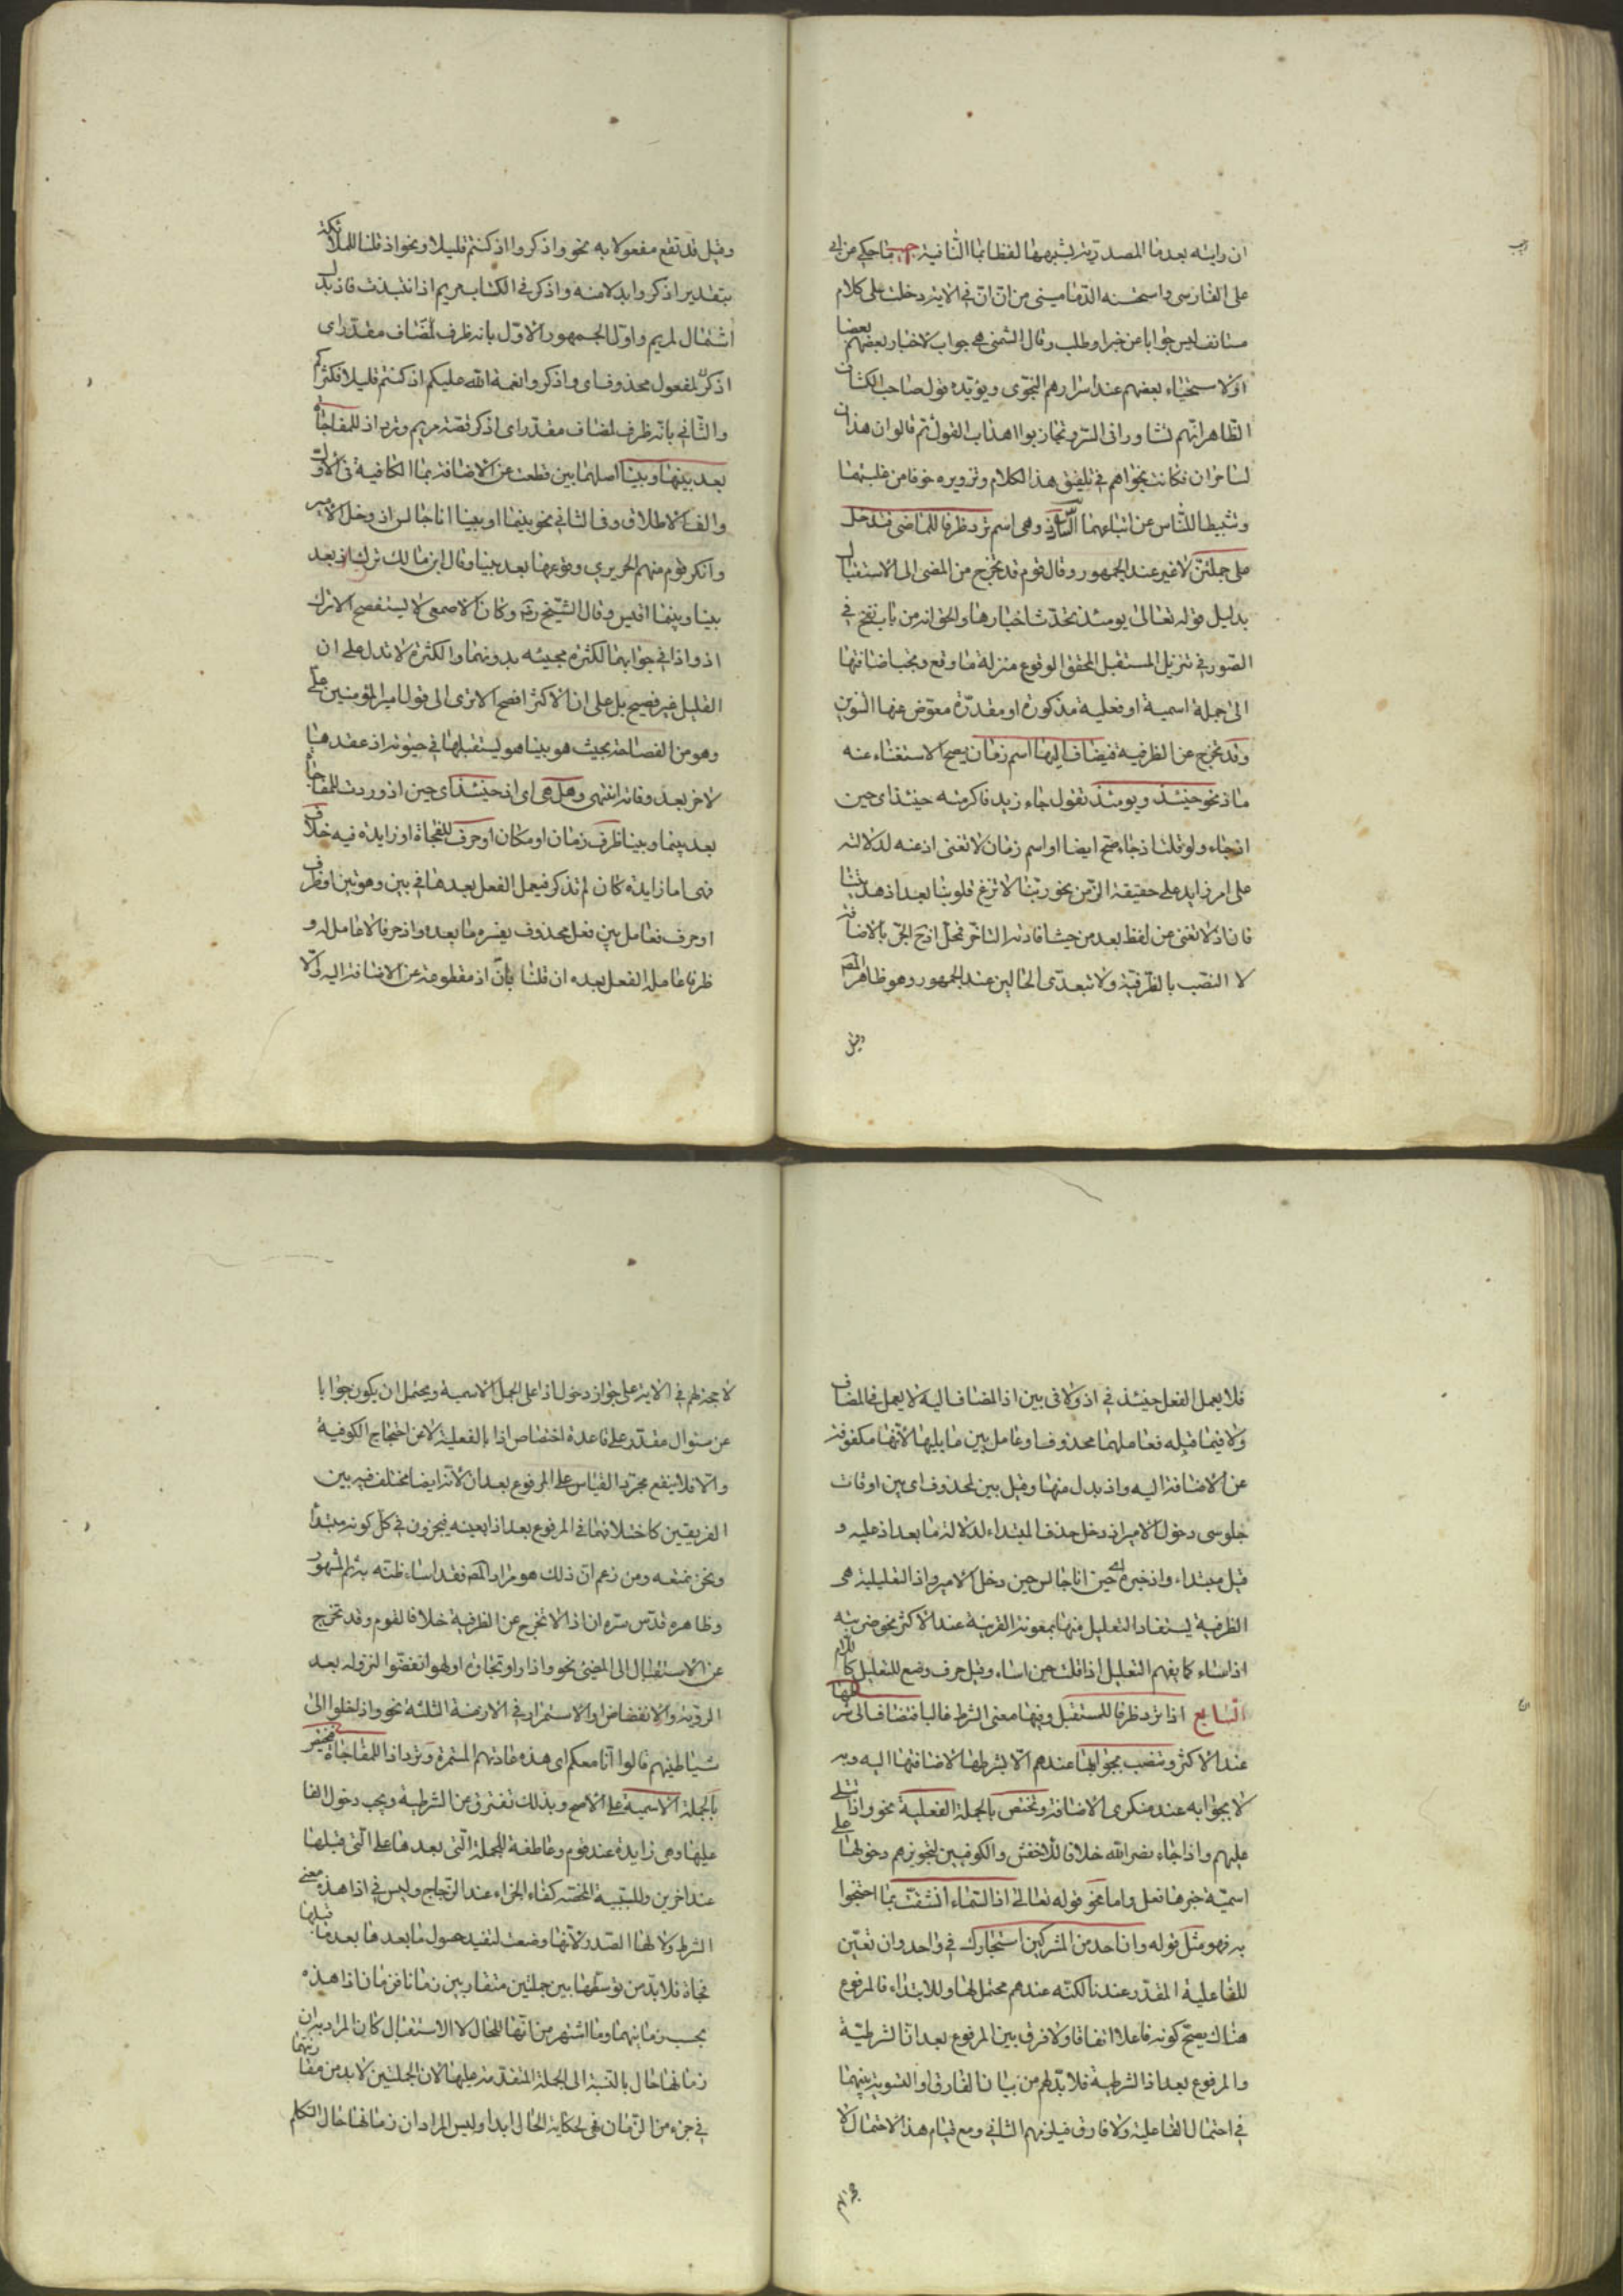 ان رايته بعد ما المصدرية يشبهها لفظا بما الثانية بما حكي عن ابي
على الفارسي واستحسنه الدماميني من ان ان في الاية دخلت على كلام
مستانف ليس جوابا عن خبر او طلب وقال الشمني هي جواب لاخبار بعضهم بعضا
او لاستخباء بعضهم عند اسرارهم النجوى ويؤيده قول صاحب الكشاف
الظاهر انهم تشاوروا في السر وتجاذبوا اهداب القول ثم قالوا ان هذان
لساحران فكانت نجواهم في تلفيق هذا الكلام وتزويره خوفا من غلبتهما
وتثبيطا للناس عن اتباعهما السادس اذ وهى اسم ترد ظرفا للماضى فتدخل
على جملتين لا غير عند الجمهور وقال قوم قد تخرج من المضى الى الاستقبال
بدليل قوله تعالى يومئذ تحدث اخبارها والحق انه من باب نفخ في
الصور في تنزيل المستقبل المحقق الوقوع منزلة ما وقع ويجب اضافتها
الى جملة اسمية او فعلية مذكورة او مقدرة معوض عنها التنوين
وقد تخرج عن الظرفية فيضاف اليها اسم زمان يصح الاستغناء عنه
ما اذ نحو حينئذ ويومئذ تقول جاء زيد فاكرمته حينئذ اى حين
اذ جاء ولو قلت اذ جاء صح ايضا او اسم زمان لا تغنى اذ عنه لدلالته
على امر زايد على حقيقة الزمن نحو ربنا لا تزغ قلوبنا بعد اذ هديتنا
فان اذ لا تغنى عن لفظ بعد من حيث افادته التاخر فمحل اذ ح الجر بالاضافة
لا النصب بالظرفية ولا تتعدى الحالين عند الجمهور وهو ظاهر المصـ
وقيل
وقيل قد تقع مفعولا به نحو واذكروا اذ كنتم قليلا ونحو واذ قلنا للملائكة
بتقدير اذكر وابدلا منه واذكر في الكتاب مريم اذ انتبذت فاذ بدل
اشتمال لمريم واول الجمهور الاول بانه ظرف لمضاف مقدر اى
اذكر لمفعول محذوف اى واذكروا نعمة الله عليكم اذ كنتم قليلا فكثركم
والثاني بانه ظرف لمضاف مقدر اى اذكر قصة مريم وترد اذ للمفاجاة
بعد بينما وبينا اصلهما بين قطعت عن الاضافة بما الكافية في الاول
والف الاطلاق في الثاني نحو بينما او بينا انا جالس اذ دخل الامير
وانكر قوم منهم الحريري وقوعها بعد بينا وقال ابن مالك ترك اذ بعد
بينا وبينما اقيس وقال الشيخ رضى وكان الاصمعى لا يستفصح الا ترك
اذ واذا في جوابهما لكثرة مجيئه بدونهما والكثرة لا تدل على ان
القليل غير فصيح بل على ان الاكثر افصح الا ترى الى قول امير المؤمنين على
وهو من الفصاحة بحيث هو بينا هو يستقيلها في حيوته اذ عقدها
لاخر بعد وفاته انتهى وهل هى اى اذ حينئذ اى حين اذ وردت للمفاجاة
بعد بينما وبينا ظرف زمان او مكان او حرف للفجاة او زايدة فيه خلاف
فهى اما زايدة كان لم تذكر فيعمل الفعل بعدها في بين وهو بين او ظرف
او حرف فعامل بين فعل محذوف يفسره ما بعده واذ حرفا لا عامل له و
ظرفا عامله الفعل بعده ان قلنا بان اذ مقطوعة عن الاضافة اليه والا
فلا يعمل الفعل حينئذ في اذ ولا في بين اذ المضاف اليه لا يعمل في المضاف
ولا فيما قبله فعاملهما محذوف او عامل بين ما يليها لانها مكفوفة
عن الاضافة اليه واذ بدل منها وقيل بين لمحذوف اى بين اوقات
جلوسى دخول الامير اذ دخل حذف المبتداء لدلالة ما بعد اذ عليه و
قيل مبتداء واذ خبره اى حين انا جالس حين دخل الامير واذ التعليلية هى
الظرفية يستفاد التعليل منها بمعونة القرينة عند الاكثر نحو ضربته
اذ اساء كما يفهم التعليل اذا قلت حين اساء وقيل حرف وضع للتعليل كاللام
السابع اذا ترد ظرفا للمستقبل وفيها معنى الشرط غالبا فتضاف الى شرطها
عند الاكثر وتنصب بجوابها عندهم الا بشرطها لاضافتها اليه وبه
لا بجوابه عند منكرى الاضافة وتختص بالجملة الفعلية نحو واذا تتلى
عليهم واذا جاء نصر الله خلافا للاخفش والكوفيين لتجويزهم دخولها على
اسمية خبرها فعل واما نحو قوله تعالى اذا السماء انشقت مما احتجوا
به فهو مثل قوله وان احد من المشركين استجارك في واحد وان تعين
للفاعلية المقدر عندنا لكنه عندهم محتمل لها وللابتداء فالمرفوع
هناك يصح كونه فاعلا اتفاقا ولا فرق بين المرفوع بعد ان الشرطية
والمرفوع بعد اذا الشرطية فلا بد لهم من بيان الفارق او التسوية بينهما
في احتمال الفاعلية ولا فارق فيلزمهم الثاني ومع قيام هذا الاحتمال لا
حجة لهم
لا حجة لهم في الاية على جواز دخول اذا على الجمل الاسمية ويحتمل ان يكون جوابا
عن سئوال مقدر على قاعدة اختصاص اذا بالفعلية لا عن احتجاج الكوفية
والا فلا ينفع مجرد القياس على المرفوع بعد ان لانه ايضا مختلف فيه بين
الفريقين كاختلافهما في المرفوع بعد اذا بعينه فيجوزون في كل كونه مبتدا
ونحن نمنعه ومن زعم ان ذلك هو مراد المصـ فقد اساء ظنه به ثم المشهور
وظاهره قدس سره ان اذا لا تخرج عن الظرفية خلافا لقوم وقد تخرج
عن الاستقبال الى المضى نحو واذا راوا تجارة او لهوا انفضوا لنزوله بعد
الرؤية والانفضاض او الاستمرار في الازمنة الثلثة نحو واذا خلوا الى
شياطينهم قالوا انا معكم اى هذه عادتهم المستمرة وترد اذا للمفاجاة فتختص
بالجملة الاسمية على الاصح وبذلك تفترق عن الشرطية ويجب دخول الفا
عليها وهى زايدة عند قوم وعاطفة للجملة التى بعدها على التى قبلها
عند اخرين وللسببية المحضة كفاء الجزاء عند الزجاج وليس في اذا هذه معنى
الشرط ولا لها الصدر لانها وضعت لتفيد حصول ما بعدها بعد ما قبلها
فجاة فلا بد من توسطها بين جملتين متقاربين زمانا فزمان اذا هذه
بحسب زمانيهما وما اشتهر من انها للحال لا الاستقبال كان المراد به ان
زمانها حال بالنسبة الى الجملة المتقدمة عليها لان الجملتين لا بد من مقارنتهما
في جزء من الزمان فهى لحكاية الحال ابدا وليس المراد ان زمانها حال التكلم